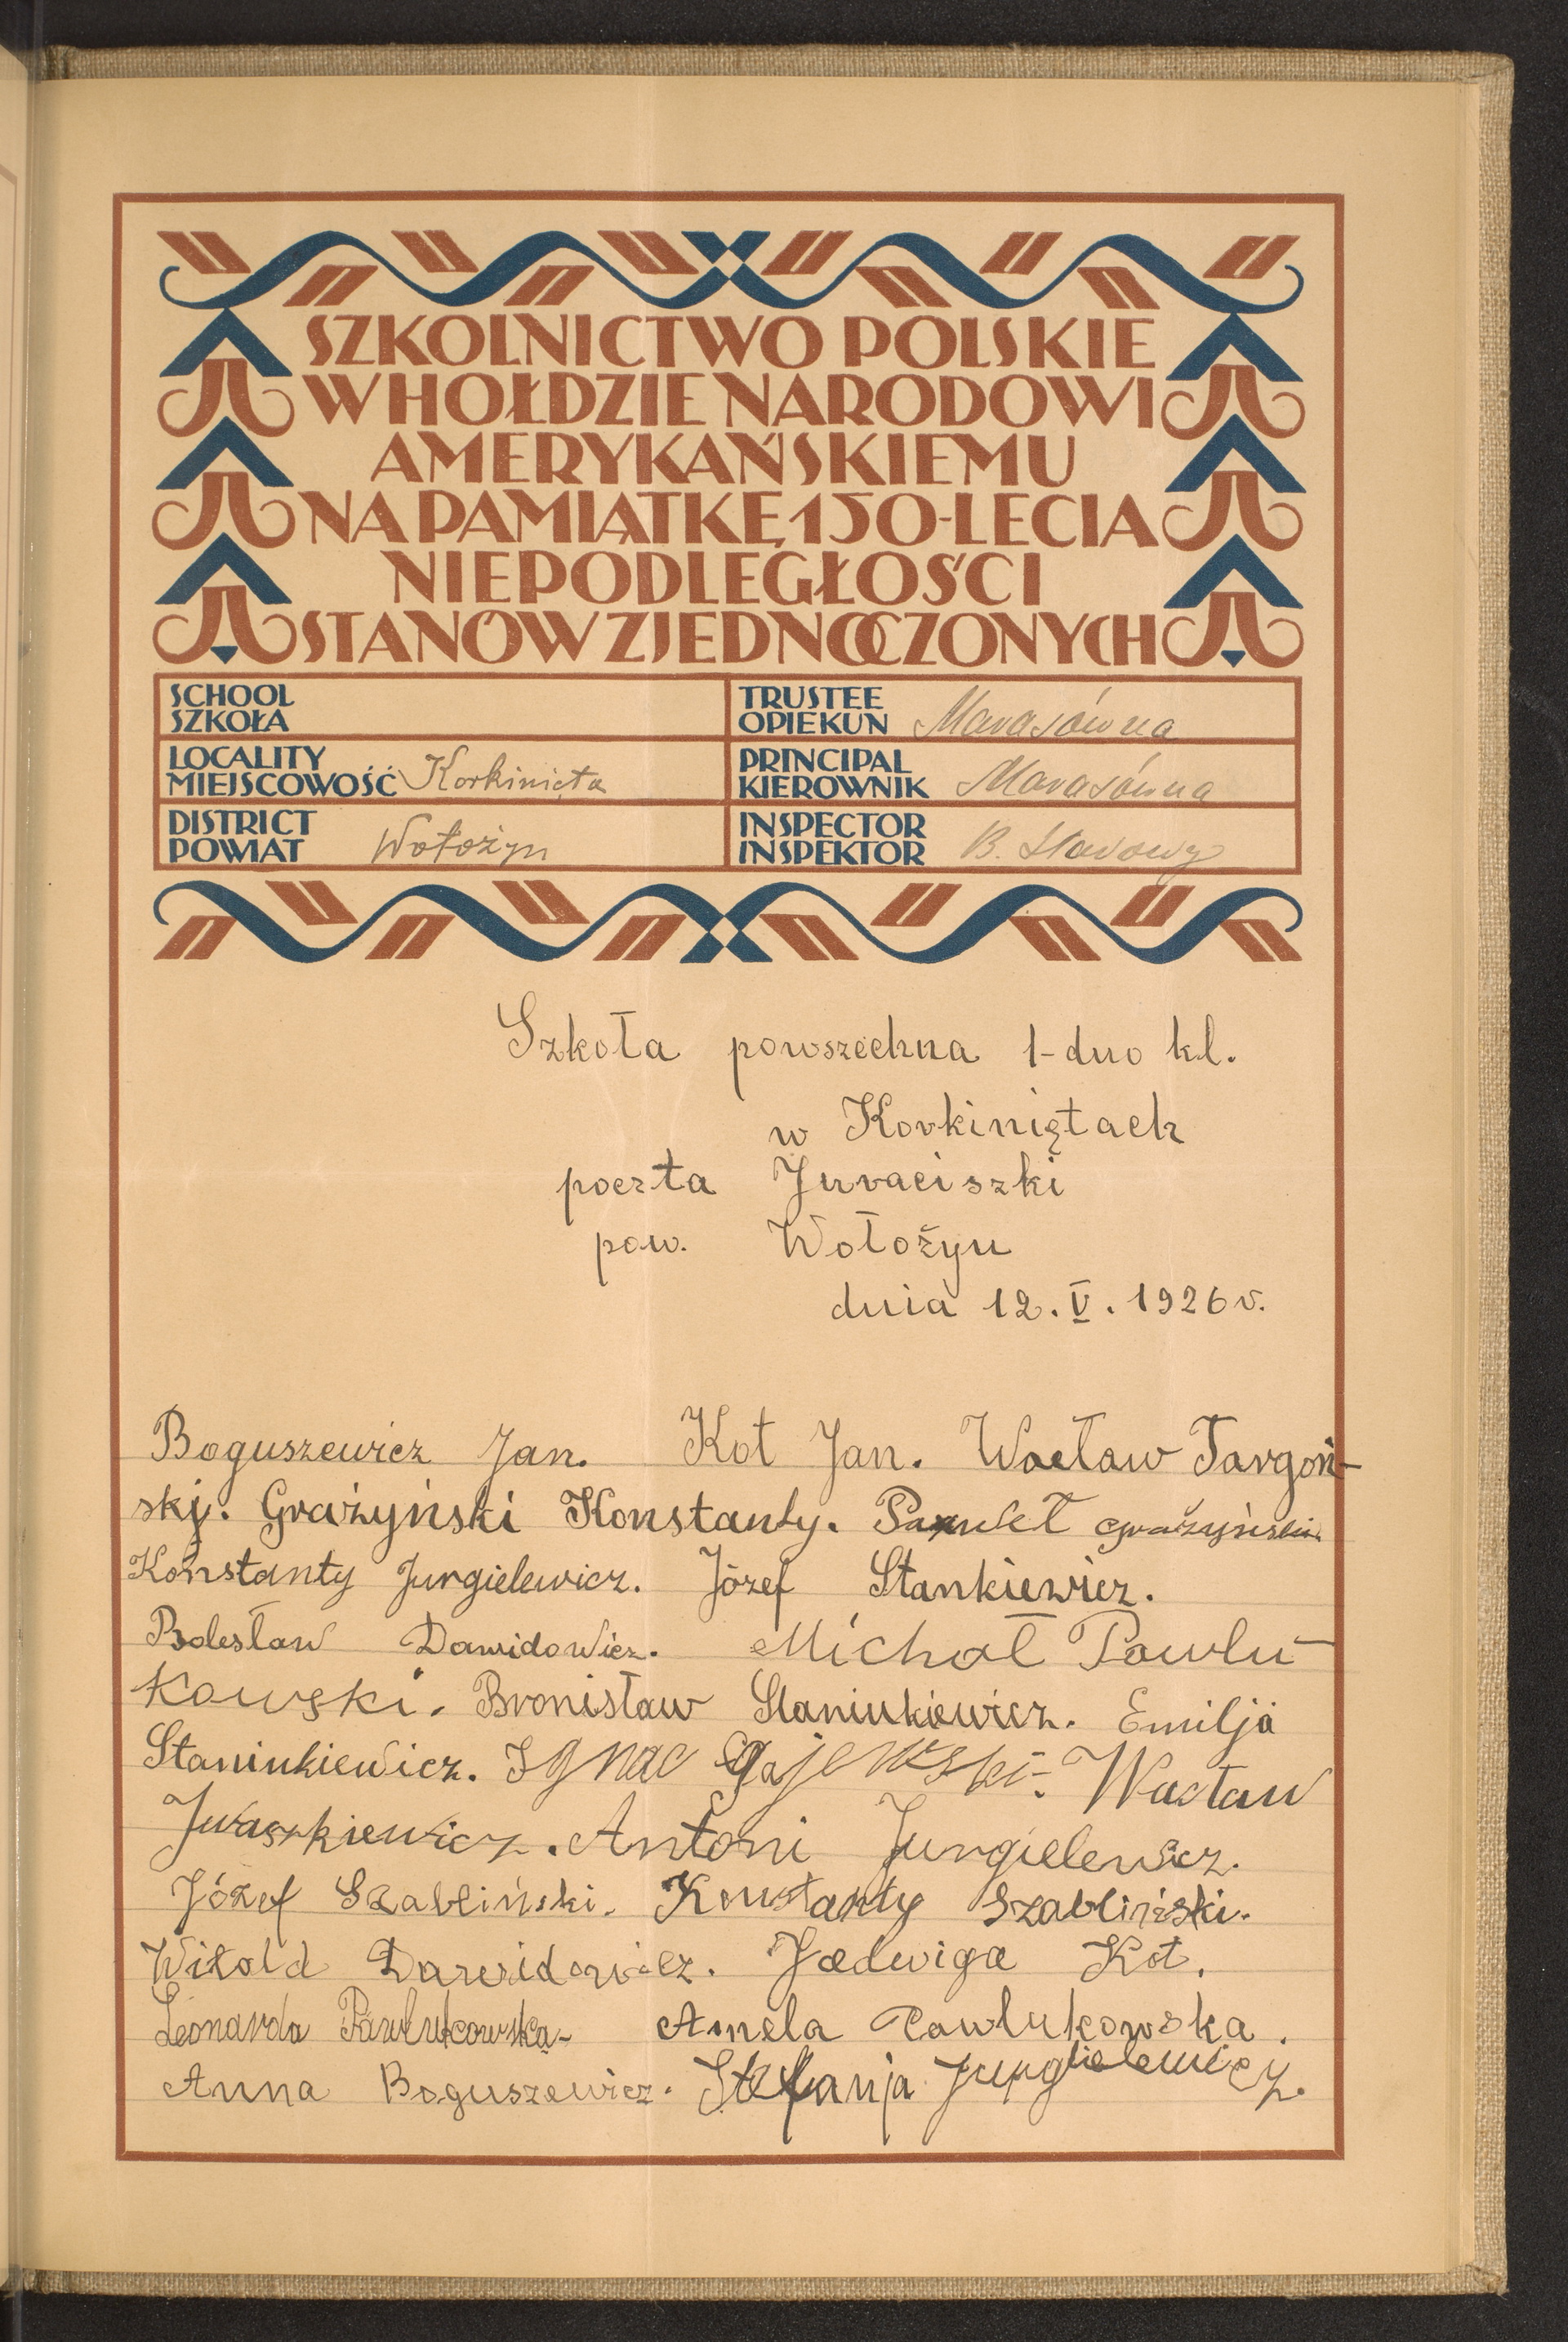 SZKOLNICTWO POLSKIE
W HOŁDZIE NARODOWI
AMERYKAŃSKIEMU
NA PAMIĄTKĘ 150-LECIA
NIEPODLEGŁOŚCI
STANÓW ZJEDNOCZONYCH
SCHOOL
SZKOŁA
TRUSTEE
OPIEKUN Marasówna
LOCALITY
MIEJSCOWOŚĆ Korkinięta
PRINCIPAL
KIEROWNIK Marasówna
DISTRICT
POWIAT Wołożyn
INSPECTOR
INSPEKTOR B.
Szkoła powszechna 1-dno kl.
w Korkiniętach
poczta Juraciszki
pow. Wołożyn
dnia 12. V. 1926 r.
Boguszewicz Jan. Kot Jan. Wacław Targoń-
ski. Grażyński Konstanty. Paweł Grażyński.
Konstanty Jurgielewicz. Józef Stankiewicz.
Bolesław Dawidowicz. Michał Pawlu-
kowski. Bronisław Staniukiewicz. Emilja
Staniukiewicz. Ignac Gajewski. Wacław
Iwaszkiewicz. Antoni Jurgielewicz.
Józef Szabliński. Konstanty Szabliński.
Witold Dawidowicz. Jadwiga Kot.
Leonarda Pawlukowska. Amela Pawlukowska.
Anna Boguszewicz. Stefanja Jurgielewicz.